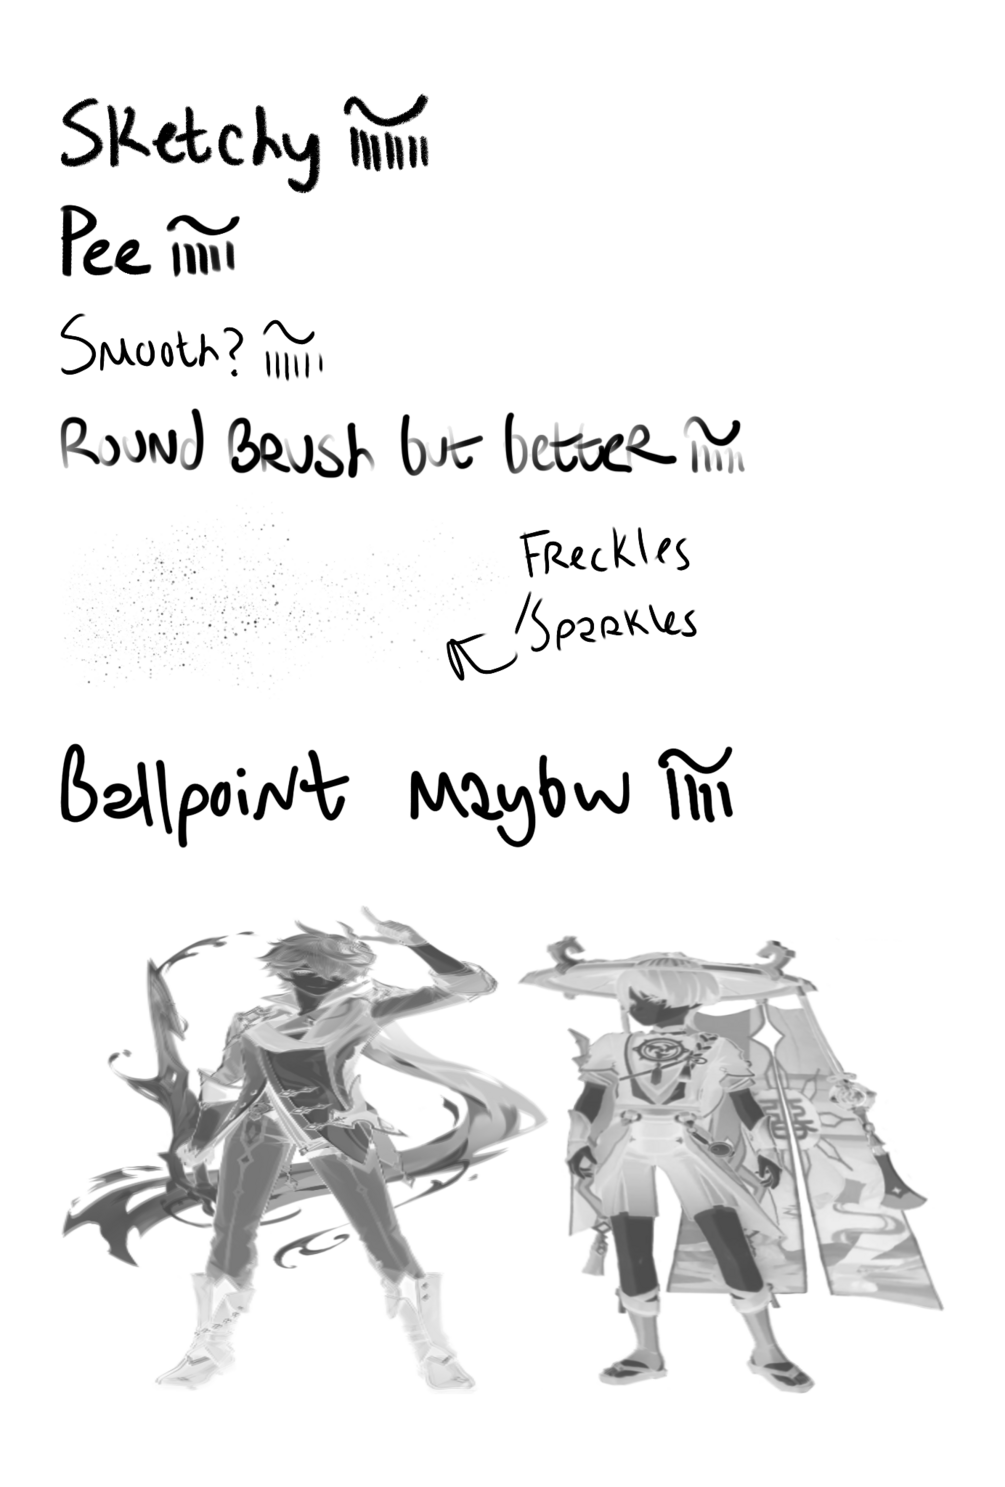 Sketchy
Pee
Smooth?
Round Brush but better
Freckles
/Sparkles
Ballpoint maybw